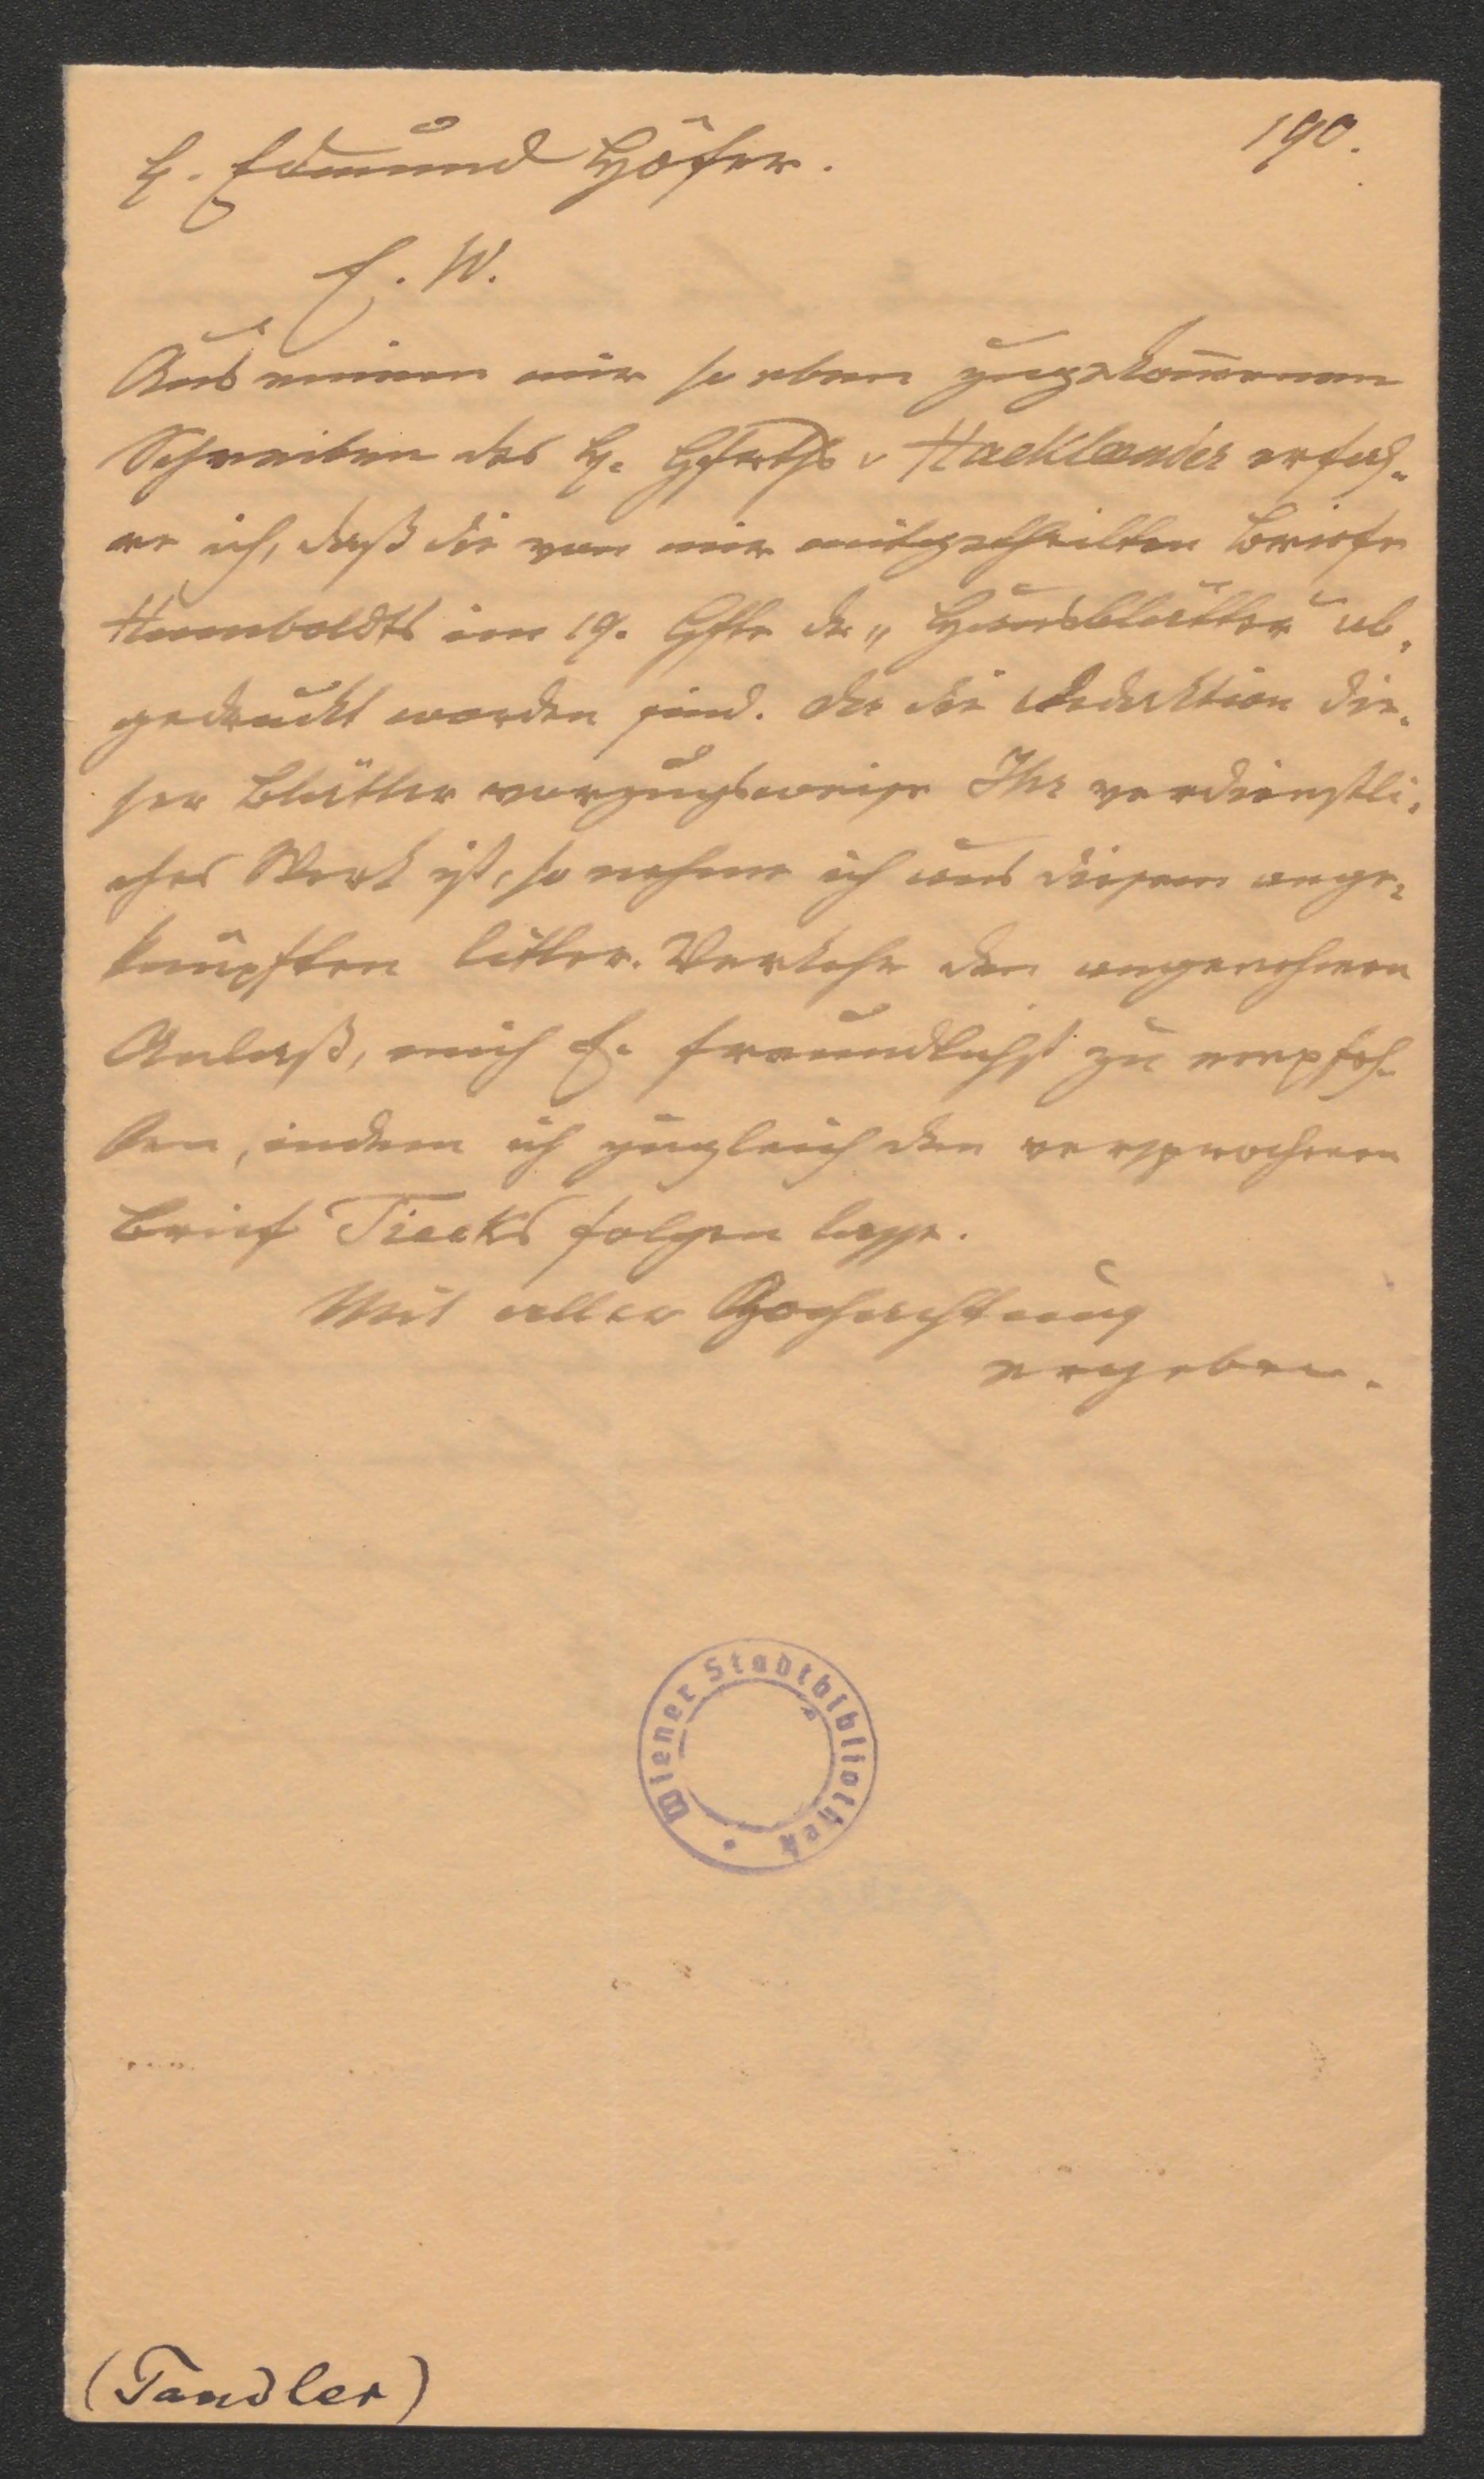 190.
H. Edmund Höfer.
E. W.
Aus einem mir so eben zugekom̅enen
Schreiben des H. Hofraths v Hackländer erfah-
re ich, daß die von mir mitgetheilten Briefe
Humboldts im 19. Hfte der „Hausblätter" ab-
gedruckt worden sind. Da die Redaktion die-
ser Blätter vorzugsweise Ihr verdienstli-
ches Werk ist, so nehme ich aus diesem ange-
knüpften litter. Verkehr den angenehmen
Anlaß, mich E. freundlichst zu empfeh-
len, indem ich zugleich den versprochenen
Brief Tiecks folgen lasse.
Mit aller Hochachtung
ergeben.
Wiener Stadtbibliothek
(Tandler)